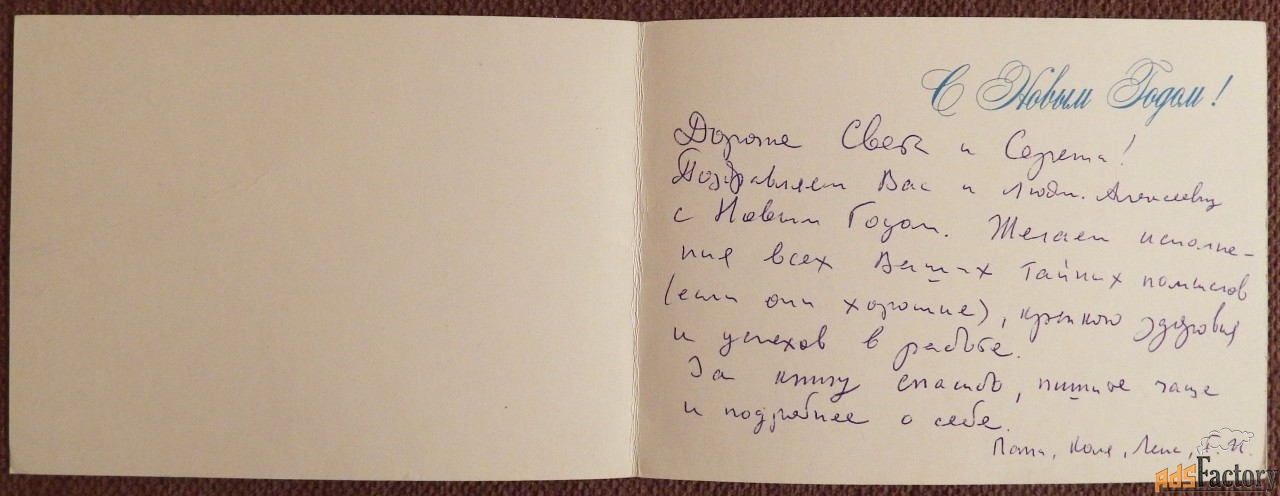 С Новым Годом!
Дорогие Света и Сережа!
Поздравляем Вас и Людм. Алексеевну
с Новым Годом. Желаем исполне-
ния всех Ваших тайных помыслов
(если они хорошие), крепкого здоровья
и успехов в работе.
За книгу спасибо, пишите чаще
и подробнее о себе.
Коля, Лена,
AdsFactory